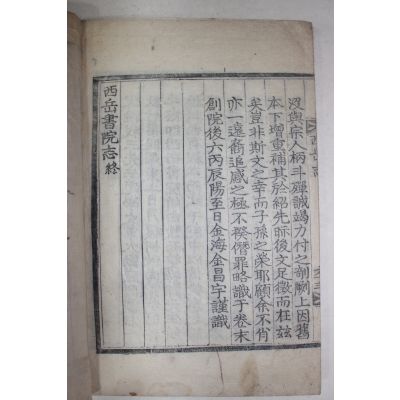 沒與宗人柄斗殫誠竭力付之剞劂上因舊
本下增重補其於紹先昞後文足徵而在玆
矣豈非斯文之幸而子孫之榮耶顧余不肖
亦一遠裔追感之極不揆僭罪略識于卷末
創院後六丙辰陽至日金海金昌宇謹識
西岳書院志終
西岳志